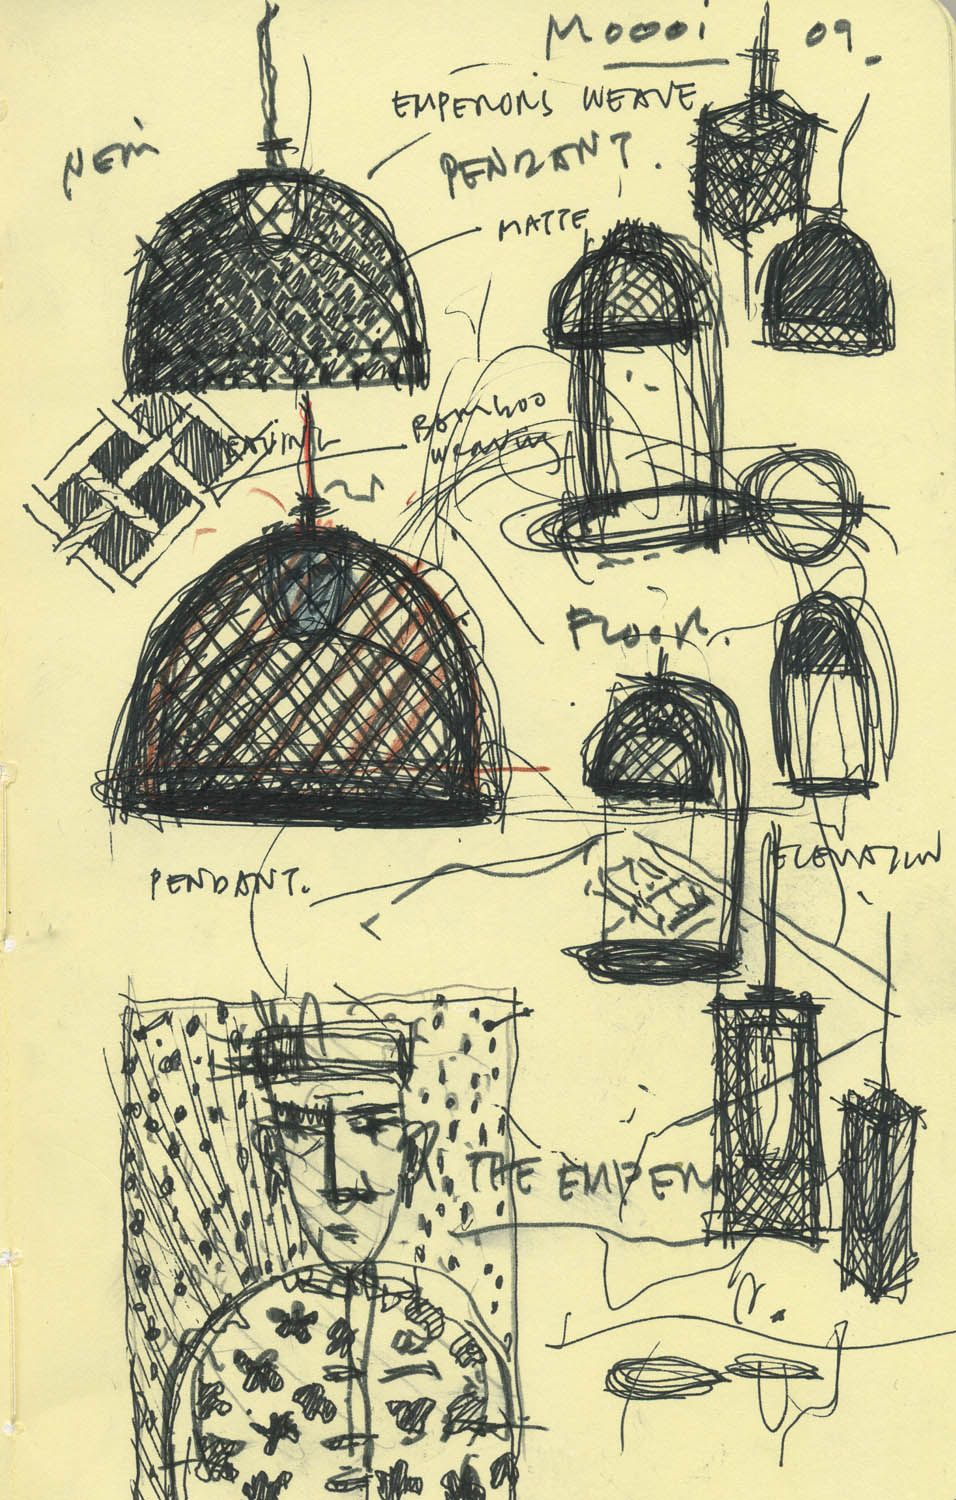 MOOOi 09
EMPEROR'S WEAVE
PENDANT.
MATTE
WEAVING
Bamboo
weaving
FLOOR.
ELEVATION
PENDANT.
THE EMPER